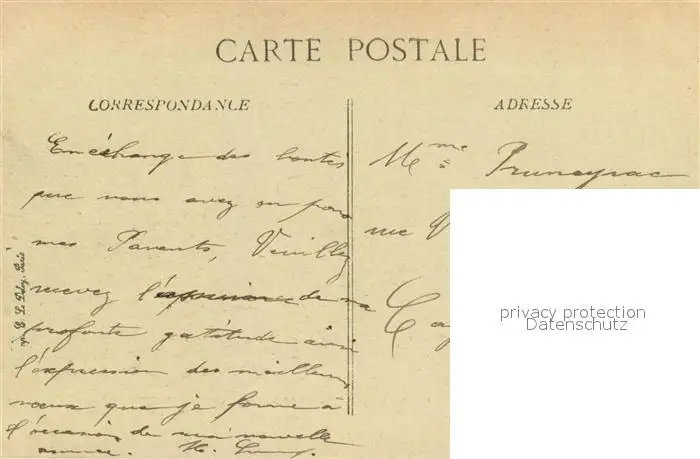 CARTE POSTALE
CORRESPONDANCE
ADRESSE
En échange des bontés
que vous avez eu pour
mes Parents, Veuillez
recevez l'expression de ma
profonte gatitude ainsi
l'expression des meilleurs
voeux que je forme à
l'occasion de la nouvelle
année. H.
Mme Pruneyrac
rue
E. Le Deley, Paris
privacy protection
Datenschutz